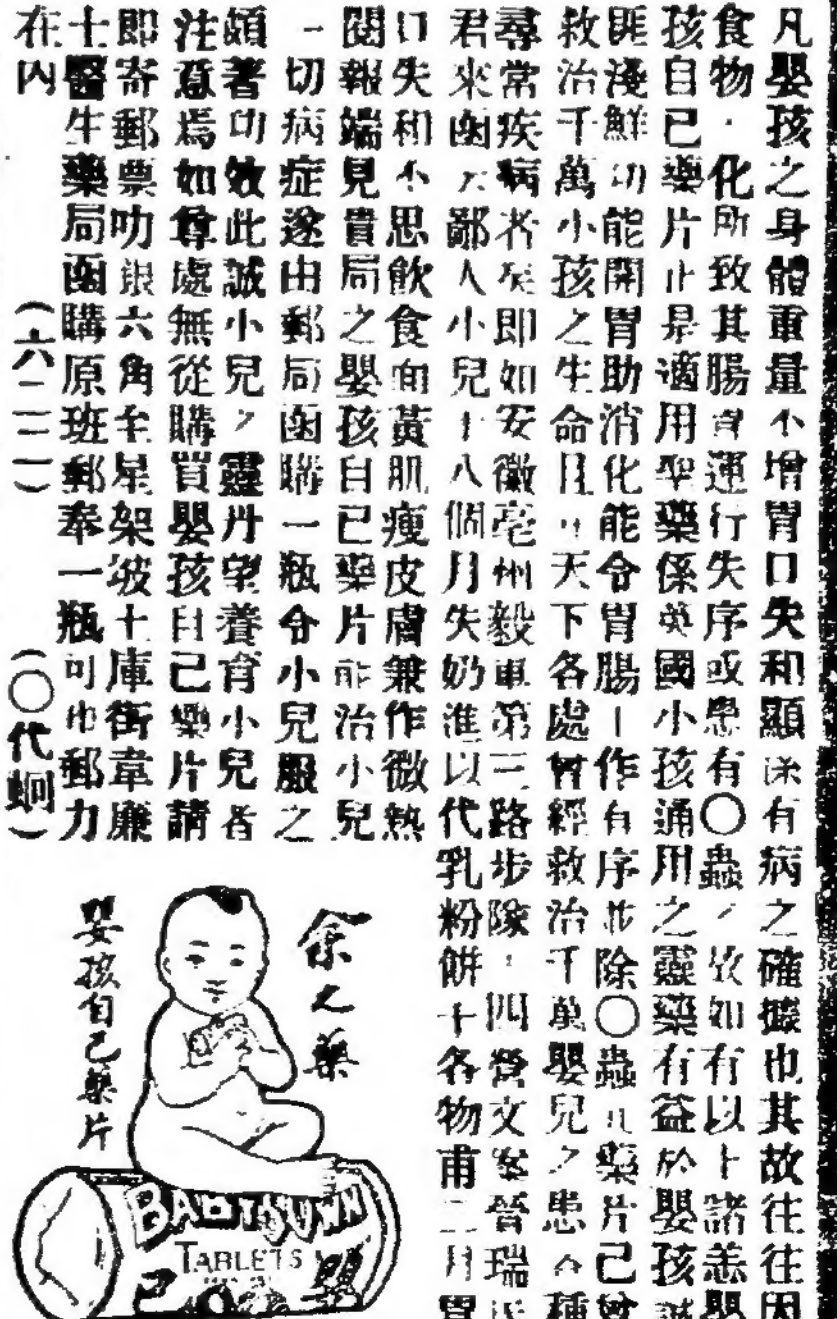 凡嬰孩之身體重量不增胃口失和顯係有病之確據也其故往往因
食物不化所致其腸胃運行失序或患有〇蟲之故如有以上諸恙嬰
孩自己藥片正是適用聖藥係英國小孩通用之靈藥有益於嬰孩誠
匪淺鮮功能開胃助消化能令胃腸工作有序並除〇蟲此藥片已曾
救治千萬小孩之生命且在天下各處曾經救治千萬嬰兒之患各種
尋常疾病者矣即如安徽亳州毅軍第三路步隊四營文案晉瑞
君來函云鄙人小兒十八個月失奶進以代乳粉餅干各物甫二月胃
口失和不思飲食面黃肌瘦皮膚兼作微熱
閱報端見貴局之嬰孩自己藥片能治小兒
一切病症遂由郵局函購一瓶令小兒服之
頗著功效此誠小兒之靈丹望養育小兒者
注意焉如尊處無從購買嬰孩自己藥片請
即寄郵票叻銀六角至星架坡十庫街韋廉
士醫生藥局函購原班郵奉一瓶可也郵力
在内
(六二二)
(〇代蛔)
余之藥
嬰孩自己藥片
BABY'S OWN
TABLETS